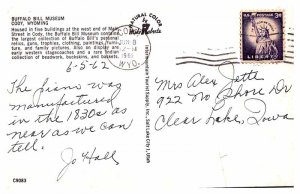 BUFFALO BILL MUSEUM
CODY, WYOMING
Housed in five buildings at the west end of Main
Street in Cody, the Buffalo Bill Museum contains
the largest collection of Buffalo Bill's personal
relics, guns, trophies, clothing, paintings, furni-
ture, and family pictures. Also on display are
early western stagecoaches and a rare Indian
collection of beadwork, buckskins, and baskets.
6-5-62
The piano was
manufactured
in the 1830s as
near as we can
tell.
Jo Hall
C9083
NATURAL COLOR
by
Mike Roberts
WYO.
U.S. POSTAGE
3¢
LIBERTY
Mrs Alex
922 No Shore Dr
Clear Lake, Iowa